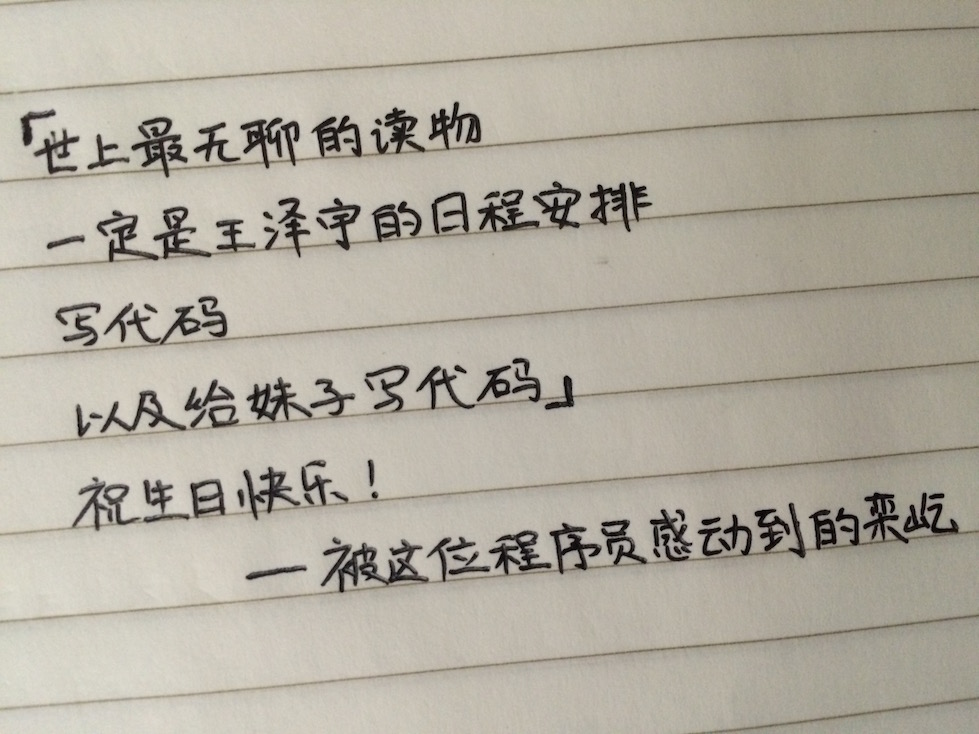 「世上最无聊的读物
一定是王泽宇的日程安排
写代码
以及给妹子写代码」
祝生日快乐!
—被这位程序员感动到的栾屹